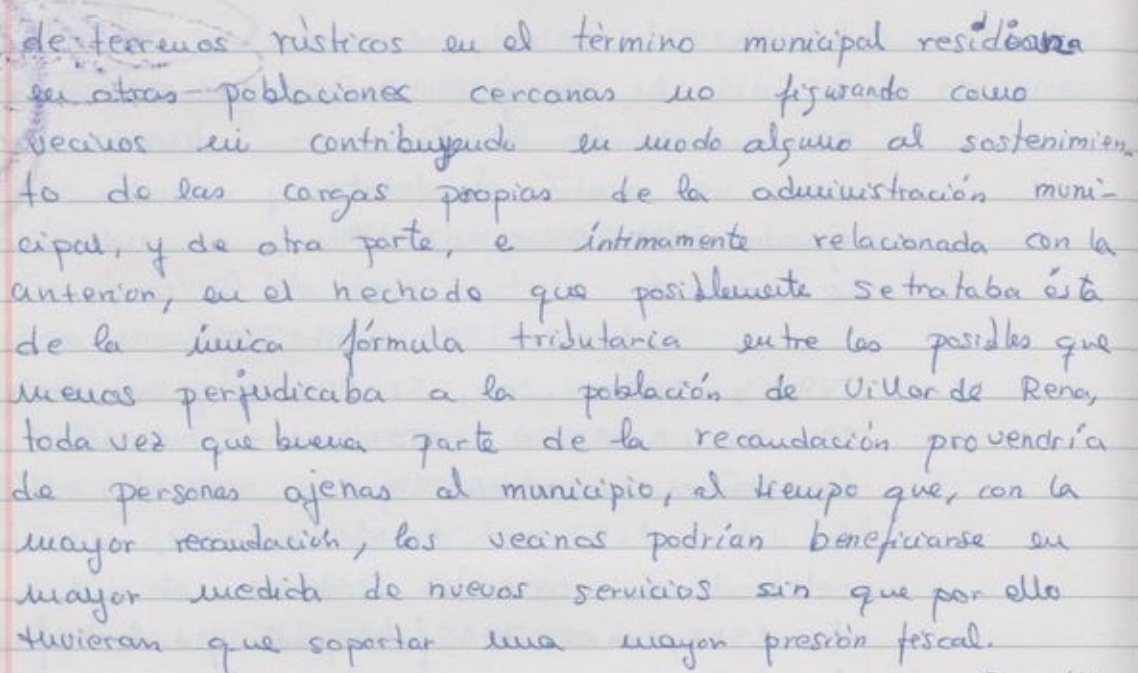 de terrenos rústicos en el término municipal residían
en otras poblaciones cercanas no figurando como
vecinos ni contribuyendo en modo alguno al sostenimien-
to de las cargas propias de la administración muni-
cipal, y de otra parte, e íntimamente relacionada con la
anterior, en el hecho de que posiblemente se trataba ésta
de la única fórmula tributaria entre las posibles que
menos perjudicaba a la población de Villar de Rena,
toda vez que buena parte de la recaudación provendría
de personas ajenas al municipio, al tiempo que, con la
mayor recaudación, los vecinos podrían beneficiarse en
mayor medida de nuevos servicios sin que por ello
tuvieran que soportar una mayor presión fiscal.